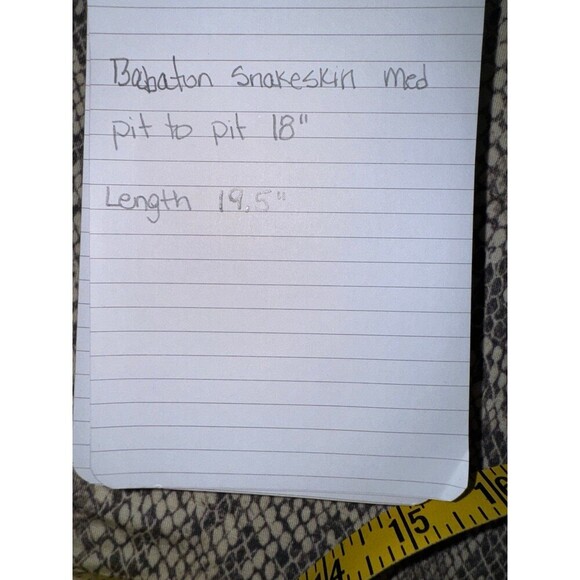 Babaton Snakeskin Med
pit to pit 18"
Length 19.5"
14 15 16